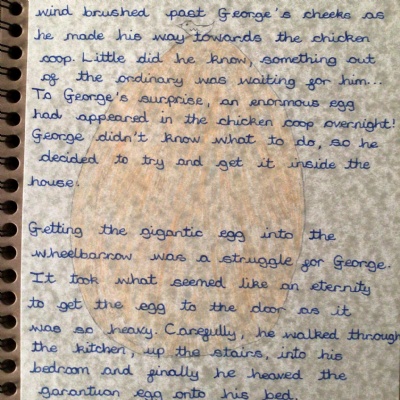 wind brushed past George's cheeks as
he made his way towards the chicken
coop. Little did he know, something out
of the ordinary was waiting for him...
To George's surprise, an enormous egg
had appeared in the chicken coop overnight!
George didn't know what to do, so he
decided to try and get it inside the
house.
Getting the gigantic egg into the
wheelbarrow was a struggle for George.
It took what seemed like an eternity
to get the egg to the door as it
was so heavy. Carefully, he walked through
the kitchen, up the stairs, into his
bedroom and finally he heaved the
garantuan egg onto his bed.